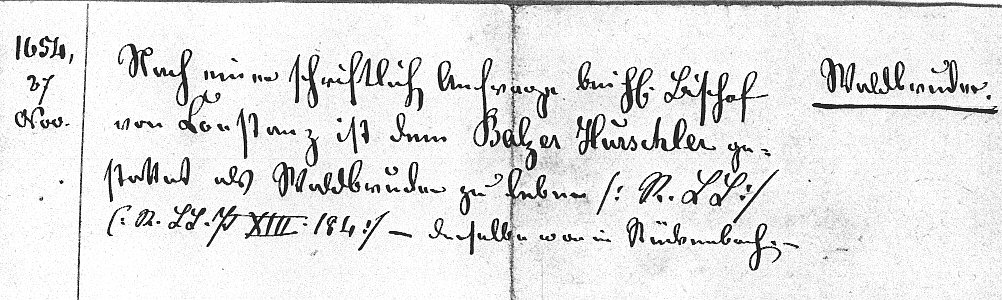 1654,
27
Nov.
Nach einer schriftlich Anfrage bei Hh. Bischof
von Constanz ist dem Balzer Hurschler ge=
stattet als Waldbruder zu leben /: R. LL :/
/: R. LL. XIII. 184 :/ — derselbe war in
Waldbruder.